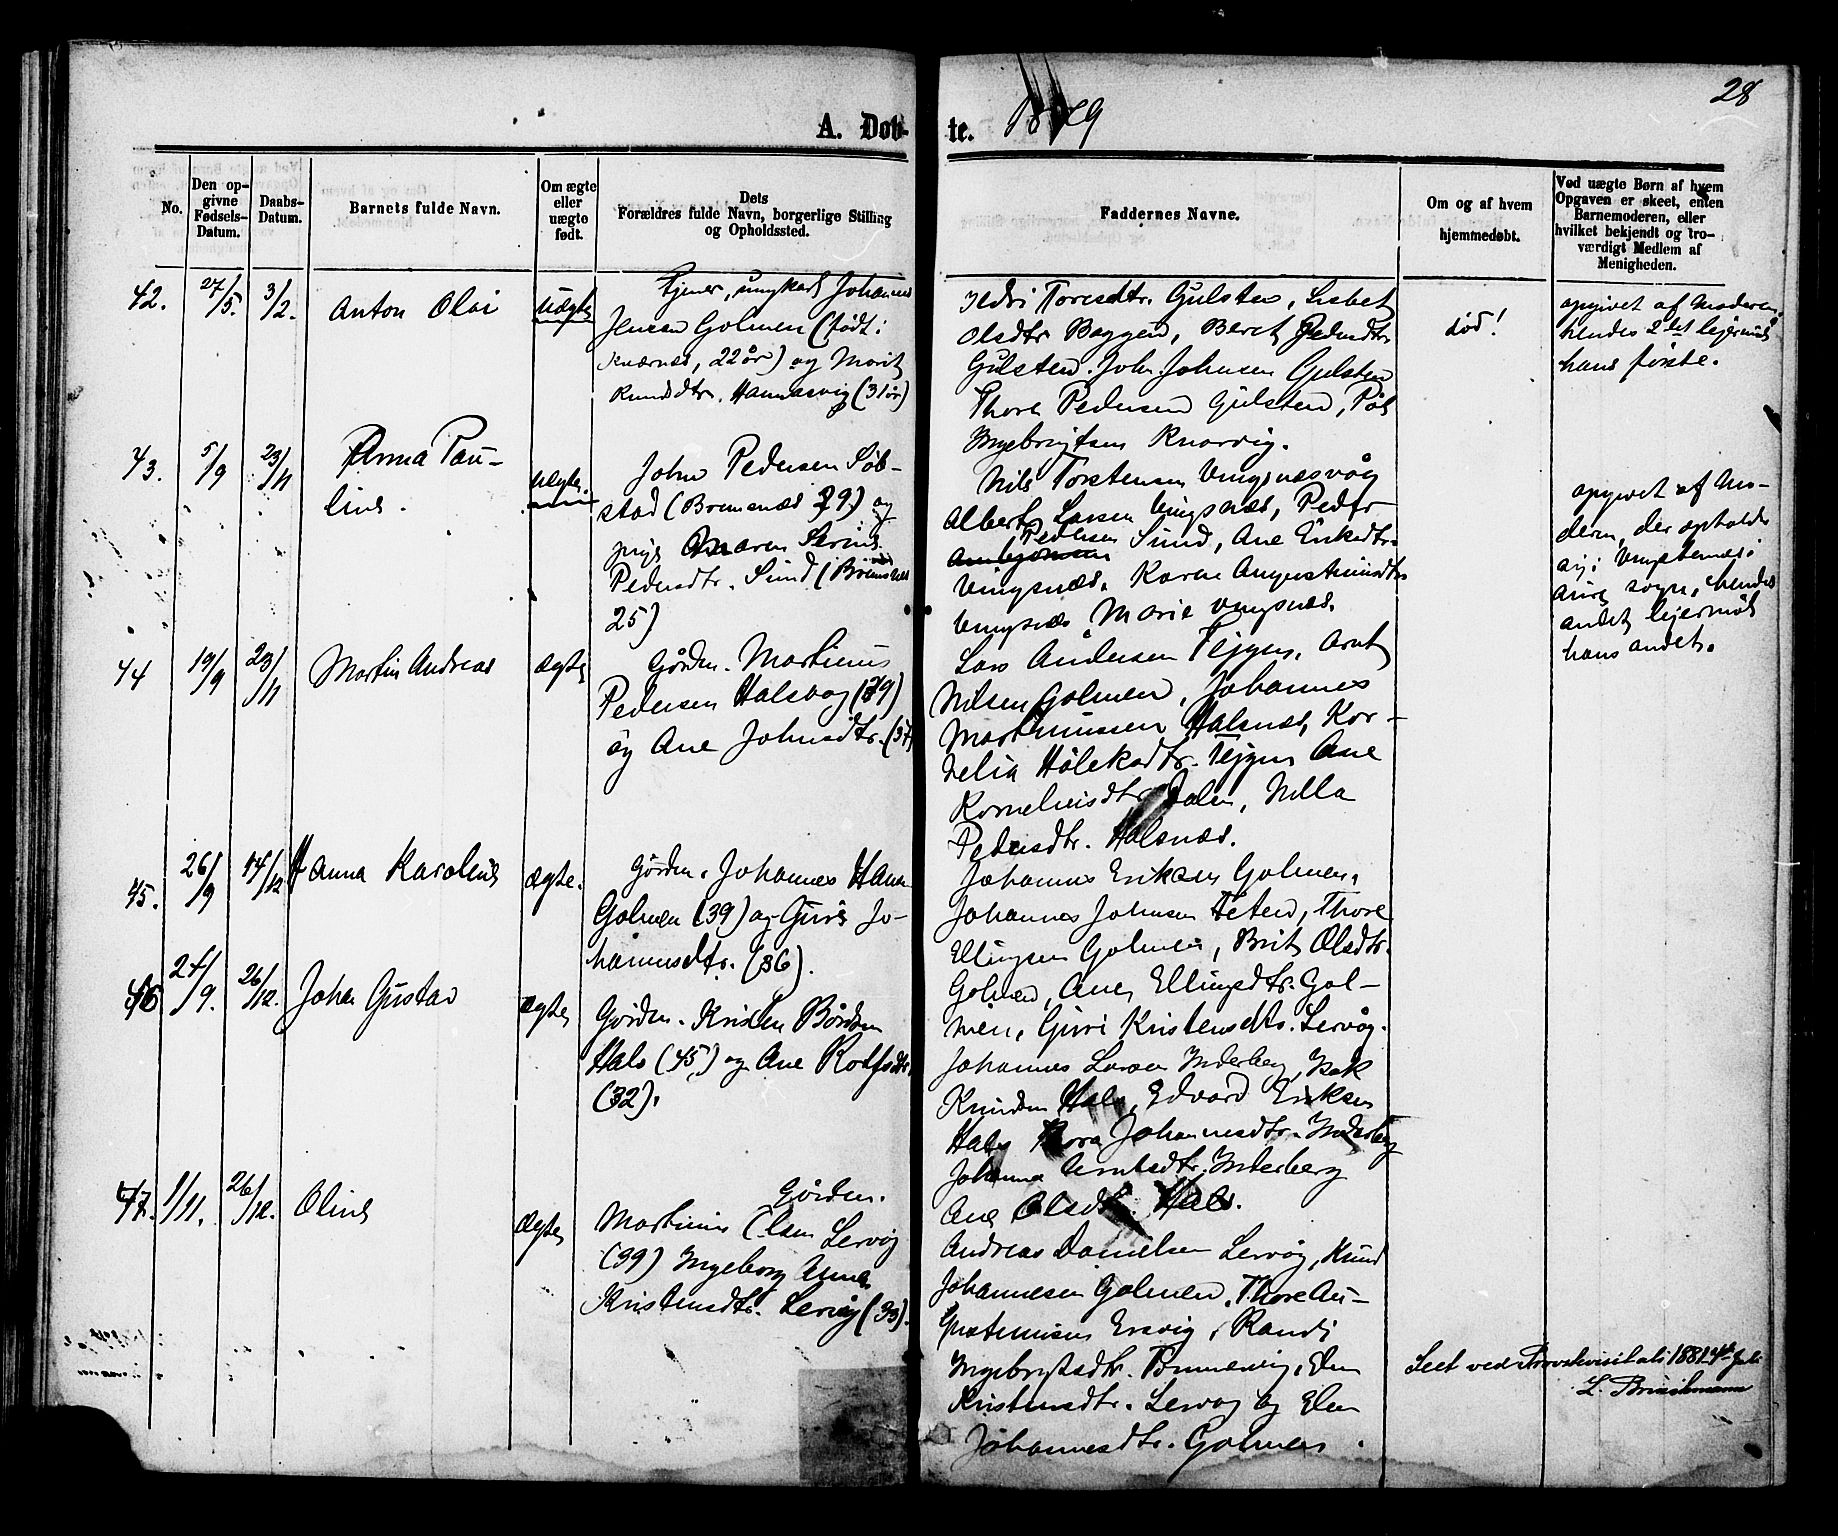 28
A. Døb-
te. 1879
No.
Den op-
givne
Fødsels-
Datum.
Daabs-
Datum.
Barnets fulde Navn.
Om ægte
eller
uægte
født.
Dets
Forældres fulde Navn, borgerlige Stilling
og Opholdssted.
Faddernes Navne.
Om og af hvem
hjemmedøbt.
Ved uægte Børn af hvem
Opgaven er skeet, enten
Barnemoderen, eller
hvilket bekjendt og tro-
værdigt Medlem af
Menigheden.
42.
27/5.
3/2.
Anton Olai
uægte
Tjener, ungkarl Johannes
Jensen Golmen (født i
22 år) og Marit
Knudsdtr. Hannasvig (31 år)
Toresdtr. Gulsten, Lisbet
Olsdtr Baggen, Beret Pedersdtr
Gulsten. John Johnsen Gulsten
Thore Pedersen Gulsten, Pål
Ingebrigtsen Knarvig.
død!
opgivet af Moderen,
hendes 2det lejermål
hans første.
43.
5/9
23/11
Anna Pau-
line.
uægte.
John Pedersen Søb-
stad (Bremsnæs 29) og
pige Maren Serine
Pedersdtr. Sund (Bremsnæs
25)
Nils Torstensen Vingsnæsvåg
Albert Larsen Vingsnæs, Peder
Pedersen Sund, Ane Eriksdtr.
Vingsnæs. Karen Augustinusdtr
Vingsnæs Marie Vingsnæs.
opgivet af Mo-
deren, der opholdt
sig i Vingsnæs i
Aure sogn, hendes
andet lejermål
hans andet.
44
19/9
23/11
Martin Andreas
ægte
Gårdm. Martinus
Pedersen Halsvag (39)
og Ane Johnsdtr. (37)
Lars Andersen Tejgen, Arnt
Nilsen Golmen, Johannes
Martinussen Halsnæs, Kor-
nelia Tejgen Ane
Korneliusdtr. Dalen, Nilla
Pedersdtr. Halsnæs.
45.
26/9
14/12
Hanna Karoline
ægte.
Gårdm. Johannes Hans
Golmen (39) og Guri Jo-
hannesdtr. (36).
Johannes Eriksen Golmen,
Johannes Johnsen Teten, Thore
Ellingsen Golmen, Brit Olsdtr.
Golmen, Ane Ellingsdtr. Gol-
men, Guri Kristensdtr. Lervåg.
46
27/9.
26/12.
Johan Gustav
ægte
Gårdm. Kristen Bårdsen
Hals (45) og Ane Rolfsdtr.
(32).
Johannes Larsen Inderberg, Isak
Knudsen Hals, Edvard Eriksen
Hals Johannesdtr. Inderberg
Johanna Arntsdtr. Inderberg
Ane Olsdtr. Hals.
47.
1/11.
26/12.
Oline
ægte
Gårdm.
Martinus Olsen Lervåg
(39) Ingeborg Anna
Kristensdtr. Lervåg (33).
Andreas Danielsen Lervåg, Knud
Johannesen Golmen, Thore Au-
gustinusen Ersvig, Randi
Ingebrigtsdtr. Elen
Kristensdtr. Lervåg og Elen
Johannesdtr. Golmen.
Seet ved Provstevisitats 1881 4de Juli
L. Brinchmann